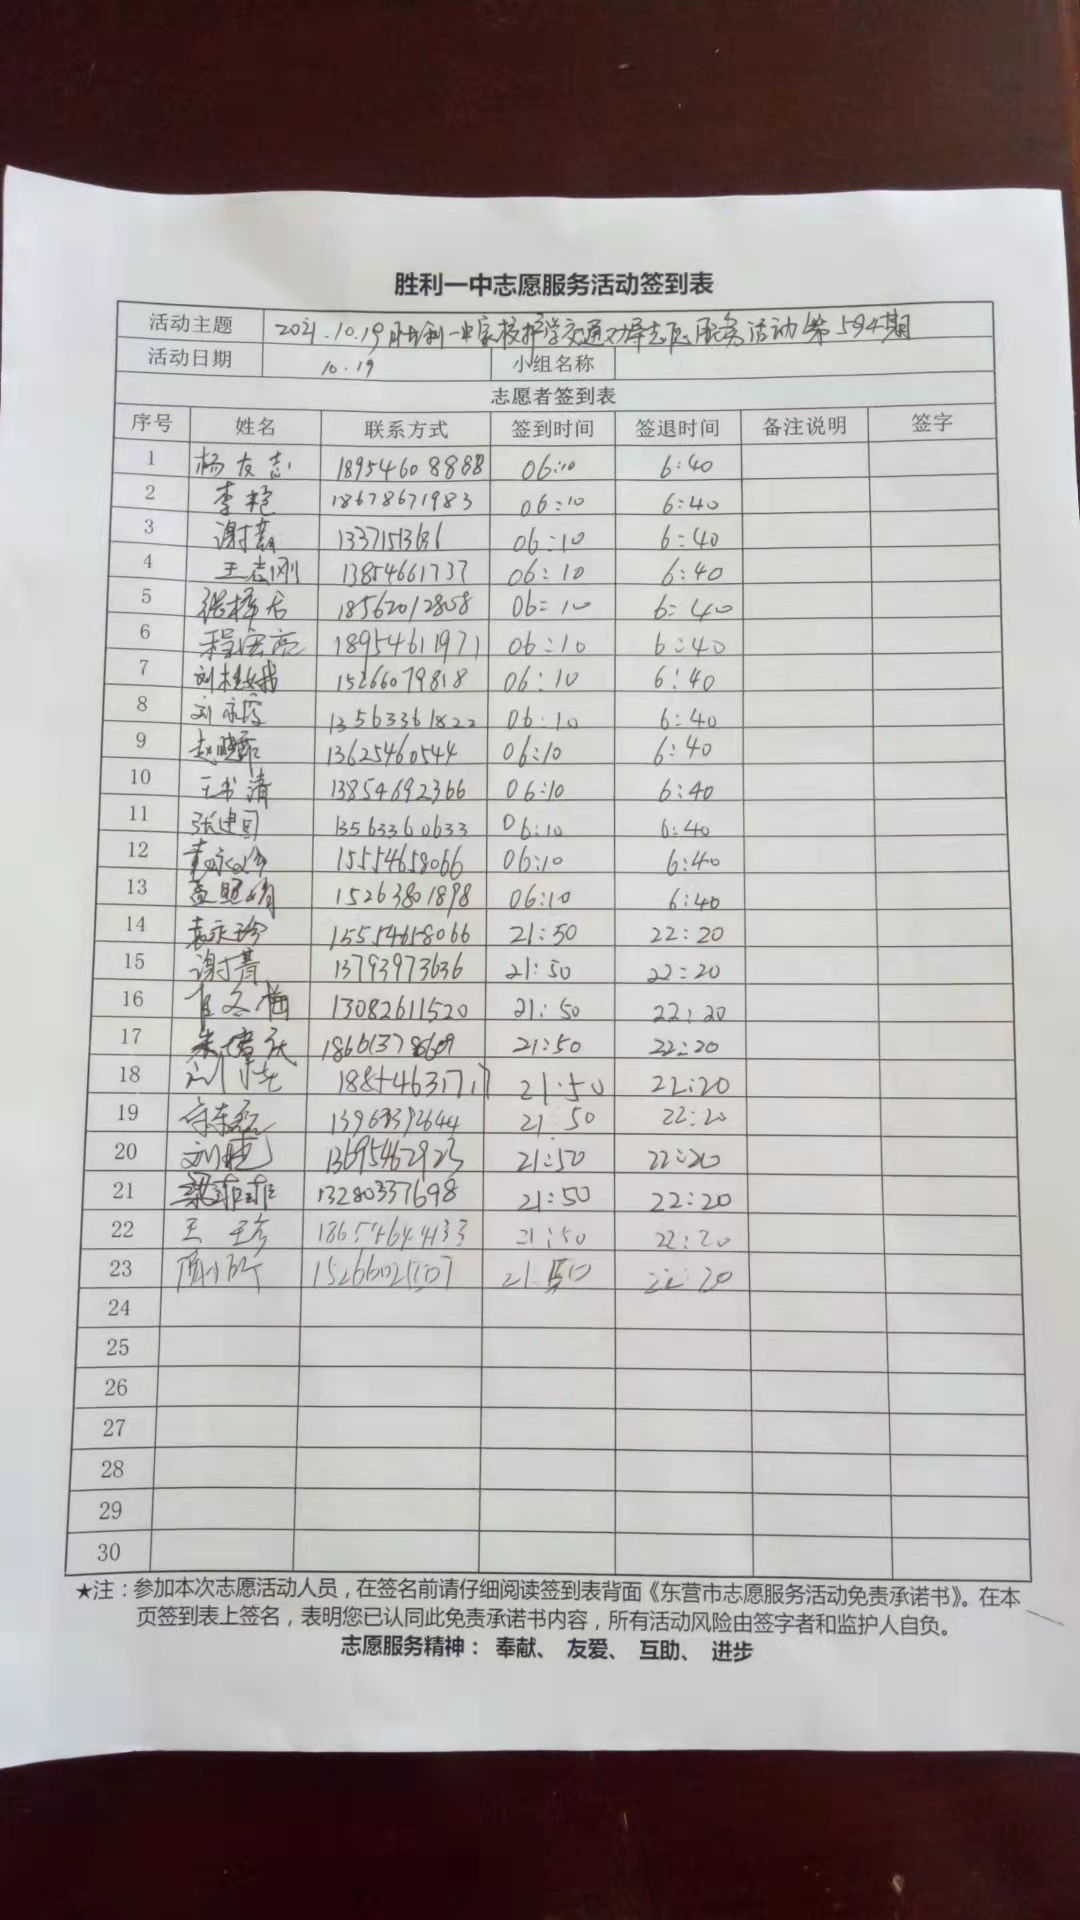 胜利一中志愿服务活动签到表
活动主题 2021.10.19胜利一中家校护学交通劝导志愿服务活动第594期
活动日期 10.19 小组名称
志愿者签到表
序号 姓名 联系方式 签到时间 签退时间 备注说明 签字
1 杨友志 18954608888 06:10 6:40
2 李艳 18678671983 06:10 6:40
3 06:10 6:40
4 王志刚 13854661737 06:10 6:40
5 18562012808 06:10 6:40
6 程宏亮 18954611971 06:10 6:40
7 刘桂娥 15266079818 06:10 6:40
8 刘永霞 13563361822 06:10 6:40
9 赵晓茹 13625460544 06:10 6:40
10 王书清 13854692366 06:10 6:40
11 张建国 13563360633 06:10 6:40
12 袁永珍 15554658066 06:10 6:40
13 孟照娟 15263801898 06:10 6:40
14 袁永珍 15554658066 21:50 22:20
15 谢菁 13793973636 21:50 22:20
16 冬梅 13082611520 21:50 22:20
17 朱 21:50 22:20
18 刘 18854631717 21:50 22:20
19 21:50 22:20
20 刘艳 13695462923 21:50 22:20
21 梁菲菲 13280337698 21:50 22:20
22 王玉珍 18654644133 21:50 22:20
23 21:50 22:20
24
25
26
27
28
29
30
★注：参加本次志愿活动人员，在签名前请仔细阅读签到表背面《东营市志愿服务活动免责承诺书》。在本
页签到表上签名，表明您已认同此免责承诺书内容，所有活动风险由签字者和监护人自负。
志愿服务精神： 奉献、 友爱、 互助、 进步